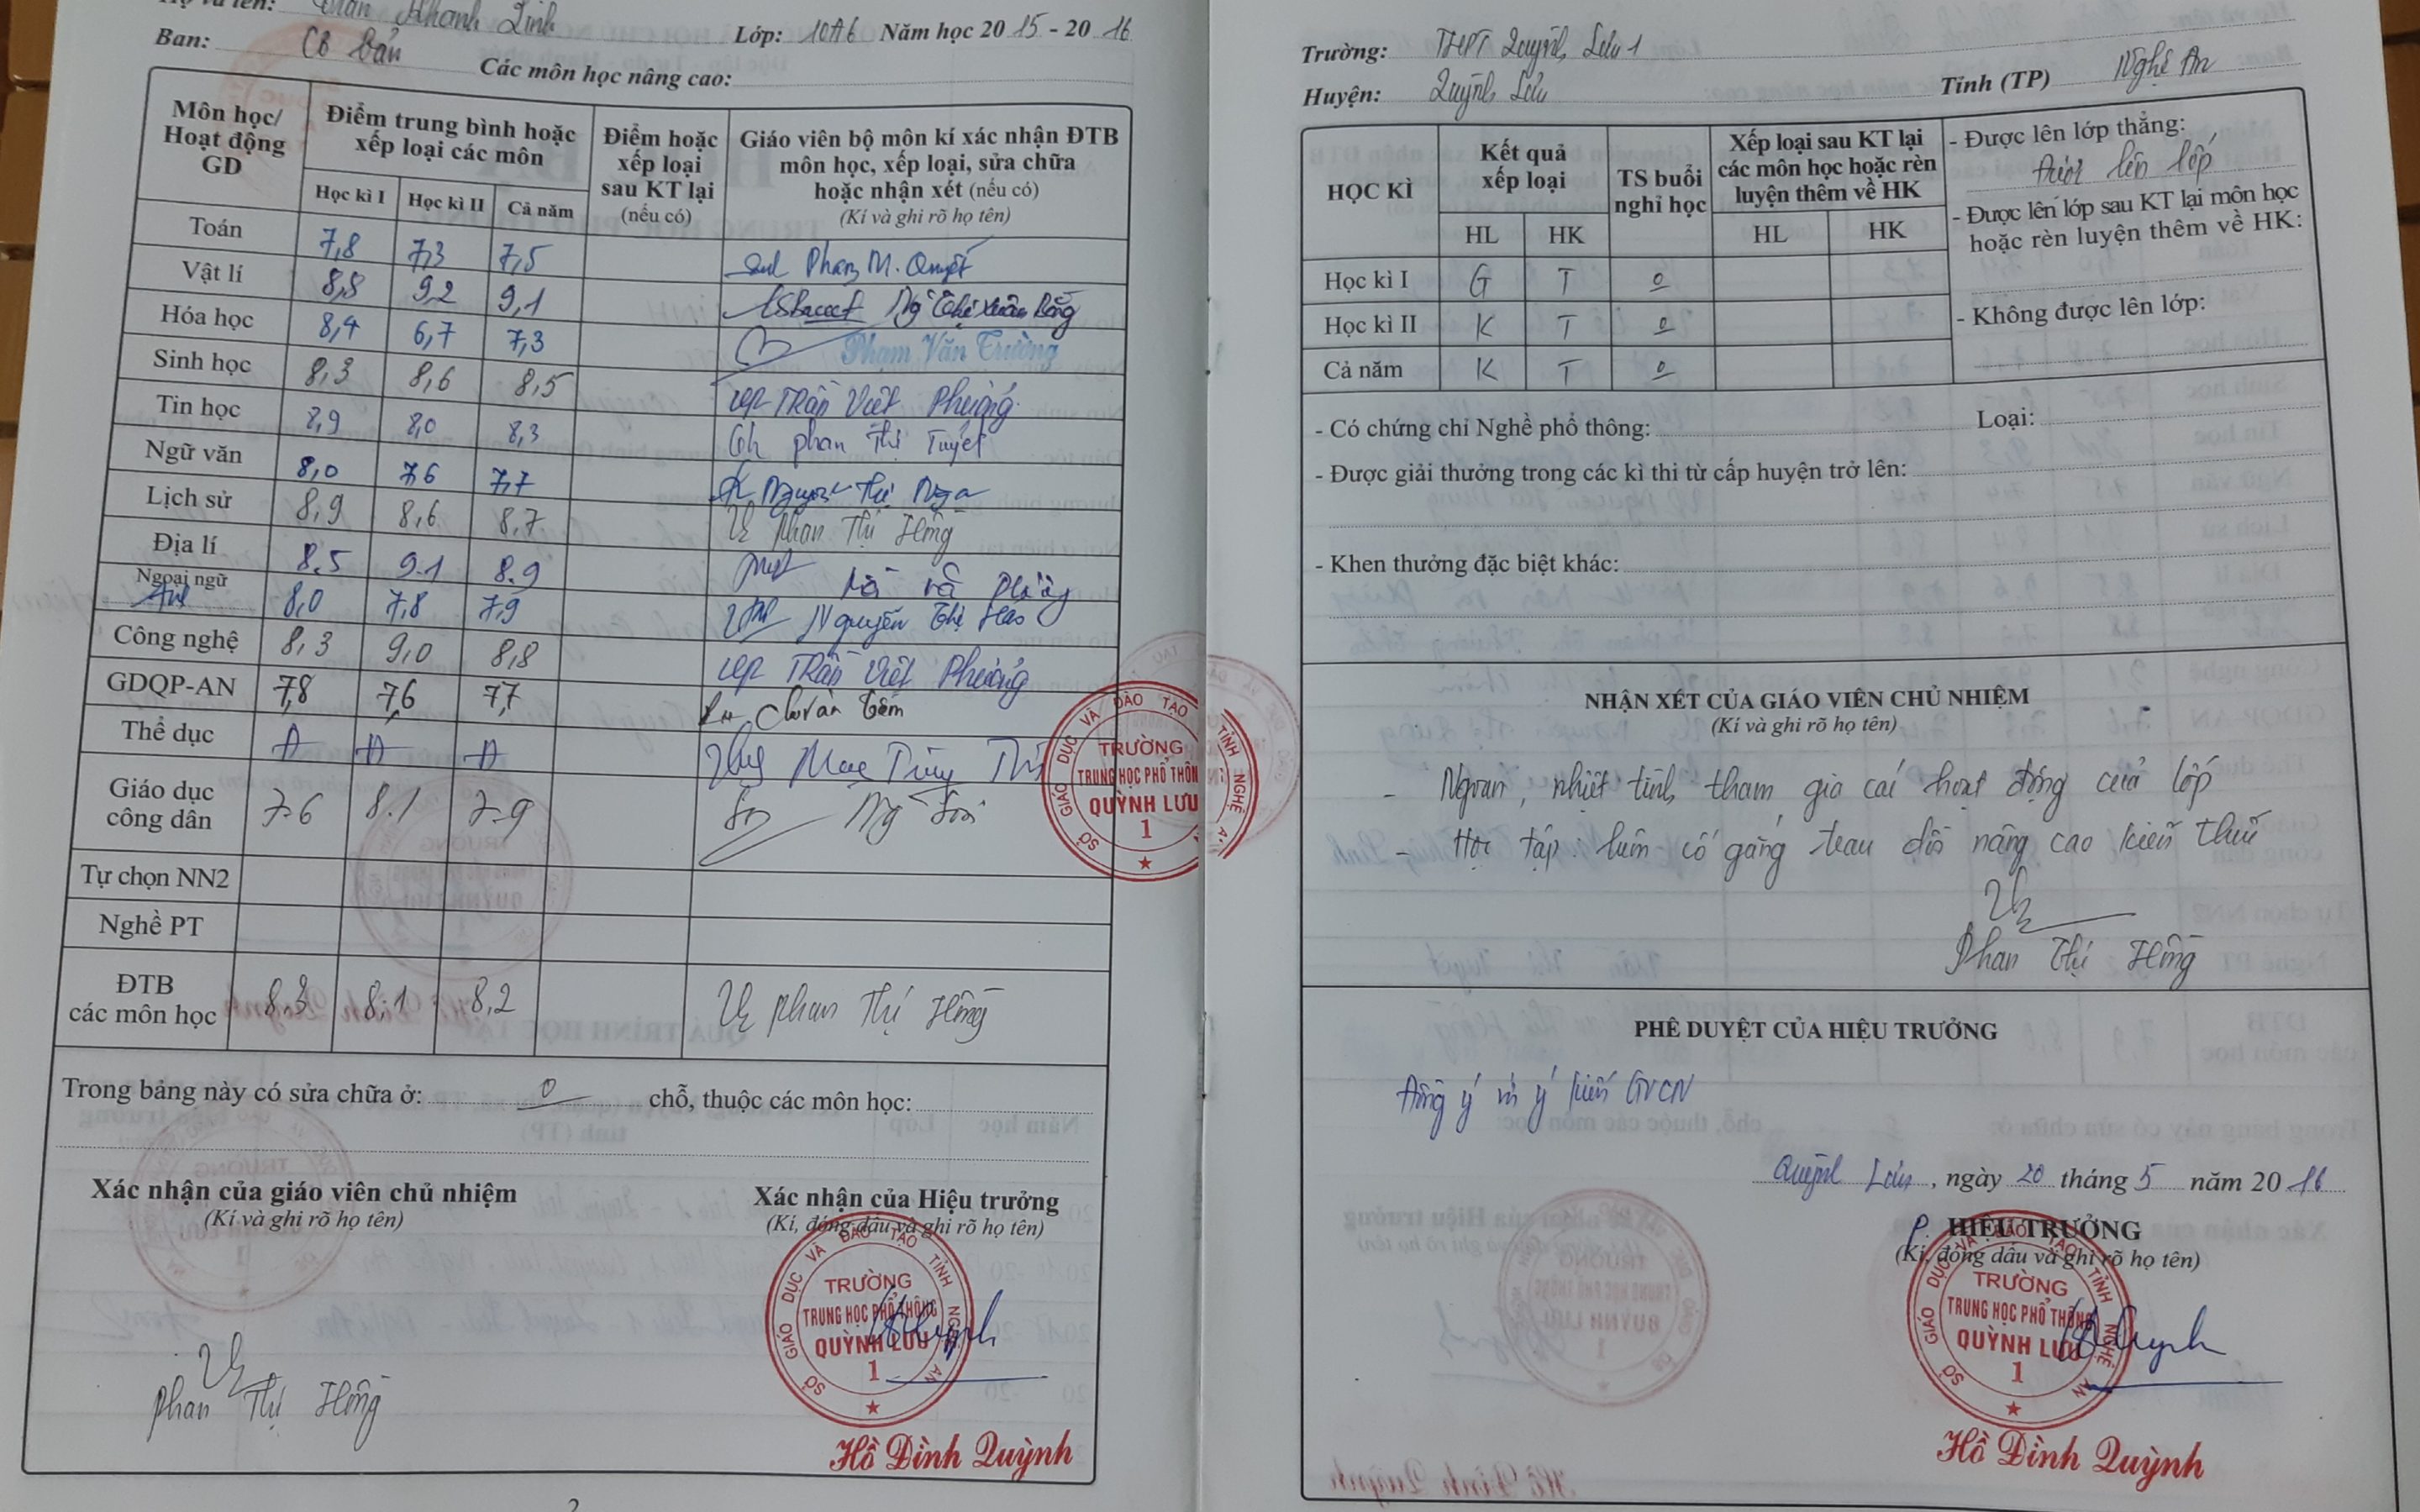 Họ và tên: Trần Khánh Linh Lớp: 10A6 Năm học 2015 - 2016
Ban: Cơ bản Các môn học nâng cao:
Môn học/ Hoạt động GD
Điểm trung bình hoặc xếp loại các môn
Điểm hoặc xếp loại sau KT lại (nếu có)
Giáo viên bộ môn kí xác nhận ĐTB môn học, xếp loại, sửa chữa hoặc nhận xét (nếu có) (Kí và ghi rõ họ tên)
Học kì I Học kì II Cả năm
Toán 7,8 7,3 7,5 Phan M. Quyết
Vật lí 8,8 9,2 9,1
Hóa học 8,4 6,7 7,3 Phạm Văn Trường
Sinh học 8,3 8,6 8,5 Trần Viết Phương
Tin học 8,9 8,0 8,3 Phan Thị Tuyết
Ngữ văn 8,0 7,6 7,7 Nguyễn Thị Nga
Lịch sử 8,9 8,6 8,7 Phan Thị Hồng
Địa lí 8.5 9.1 8.9
Ngoại ngữ Anh 8,0 7,8 7,9 Nguyễn Thị Hảo
Công nghệ 8,3 9,0 8,8 Trần Viết Phương
GDQP-AN 7,8 7,6 7,7
Thể dục Đ Đ Đ
Giáo dục công dân 7.6 8.1 7.9
Tự chọn NN2
Nghề PT
ĐTB các môn học 8,3 8,1 8,2 Phan Thị Hồng
Trong bảng này có sửa chữa ở: 0 chỗ, thuộc các môn học:
Xác nhận của giáo viên chủ nhiệm
(Kí và ghi rõ họ tên)
Phan Thị Hồng
Xác nhận của Hiệu trưởng
(Kí, đóng dấu và ghi rõ họ tên)
SỞ GIÁO DỤC VÀ ĐÀO TẠO TỈNH NGHỆ AN
TRƯỜNG
TRUNG HỌC PHỔ THÔNG
QUỲNH LƯU
1
Hồ Đình Quỳnh
2
SỞ GIÁO DỤC VÀ ĐÀO TẠO TỈNH NGHỆ A
TRƯỜNG
TRUNG HỌC PHỔ THÔN
QUỲNH LƯU
1
Trường: THPT Quỳnh Lưu 1
Huyện: Quỳnh Lưu Tỉnh (TP) Nghệ An
HỌC KÌ
Kết quả xếp loại
TS buổi nghỉ học
Xếp loại sau KT lại các môn học hoặc rèn luyện thêm về HK
HL HK HL HK
Học kì I G T 0
Học kì II K T 0
Cả năm K T 0
- Được lên lớp thẳng:
Được lên lớp
- Được lên lớp sau KT lại môn học hoặc rèn luyện thêm về HK:
- Không được lên lớp:
- Có chứng chỉ Nghề phổ thông: Loại:
- Được giải thưởng trong các kì thi từ cấp huyện trở lên:
- Khen thưởng đặc biệt khác:
NHẬN XÉT CỦA GIÁO VIÊN CHỦ NHIỆM
(Kí và ghi rõ họ tên)
- Ngoan, nhiệt tình tham gia các hoạt động của lớp
- Học tập luôn cố gắng trau dồi nâng cao kiến thức
Phan Thị Hồng
PHÊ DUYỆT CỦA HIỆU TRƯỞNG
Đồng ý với ý kiến GVCN
Quỳnh Lưu, ngày 20 tháng 5 năm 2016
P. HIỆU TRƯỞNG
(Kí, đóng dấu và ghi rõ họ tên)
SỞ GIÁO DỤC VÀ ĐÀO TẠO TỈNH NGHỆ AN
TRƯỜNG
TRUNG HỌC PHỔ THÔNG
QUỲNH LƯU
1
Hồ Đình Quỳnh